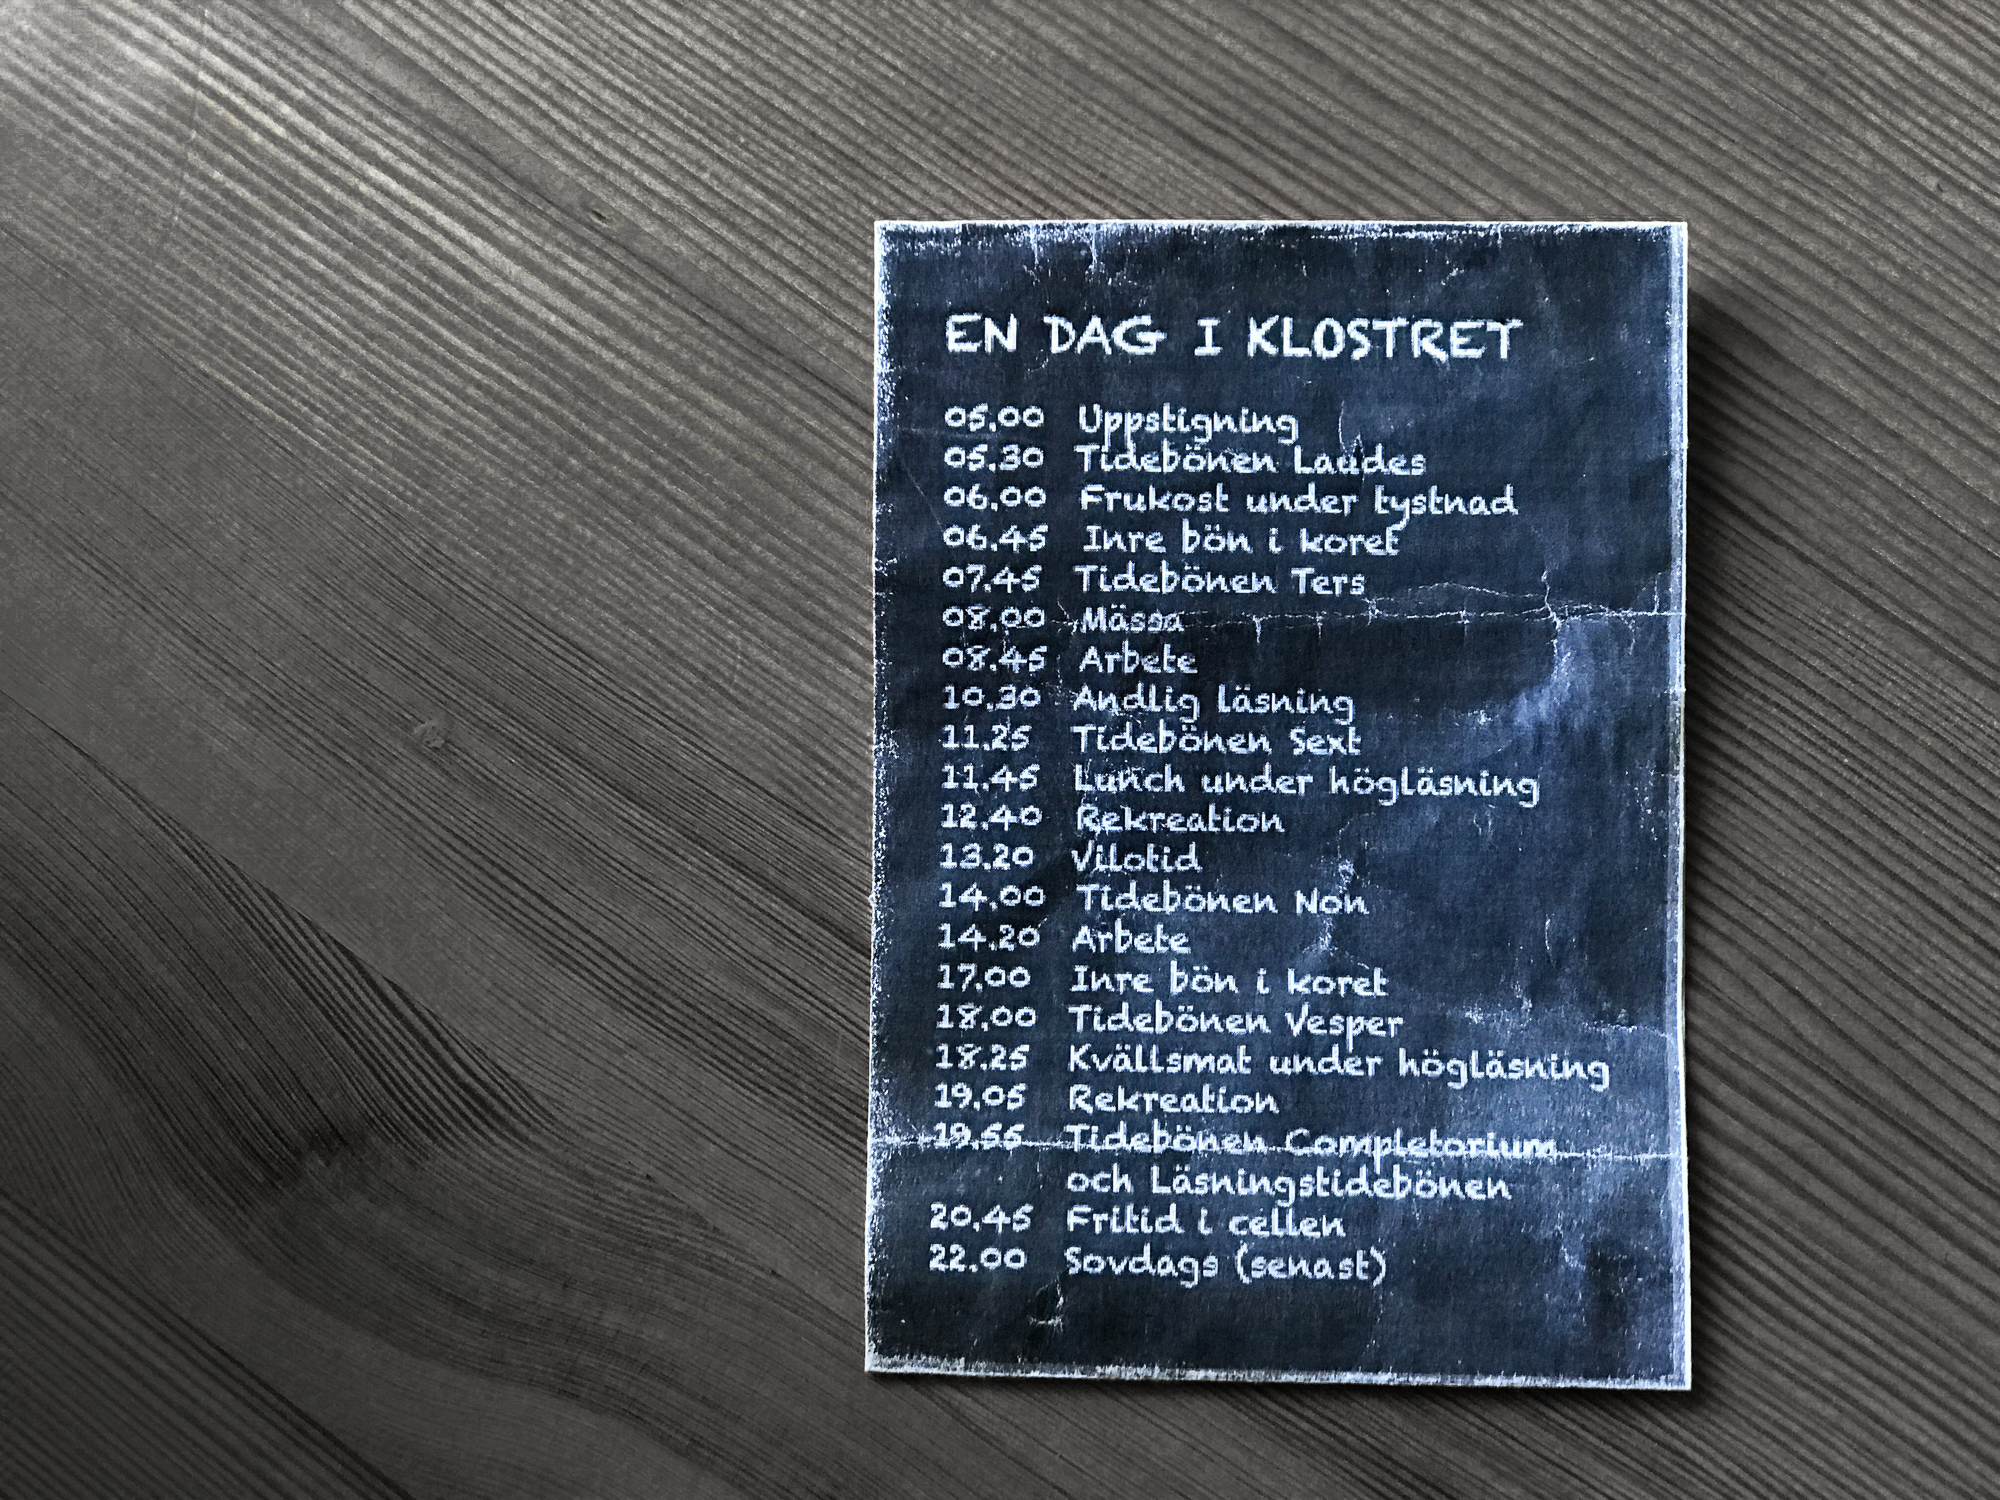 EN DAG I KLOSTRET
05.00 Uppstigning
05.30 Tidebönen Laudes
06.00 Frukost under tystnad
06.45 Inre bön i koret
07.45 Tidebönen Ters
08.00 Mässa
08.45 Arbete
10.30 Andlig läsning
11.25 Tidebönen Sext
11.45 Lunch under högläsning
12.40 Rekreation
13.20 Vilotid
14.00 Tidebönen Non
14.20 Arbete
17.00 Inre bön i koret
18.00 Tidebönen Vesper
18.25 Kvällsmat under högläsning
19.05 Rekreation
19.55 Tidebönen Completorium
och Läsningstidebönen
20.45 Fritid i cellen
22.00 Sovdags (senast)